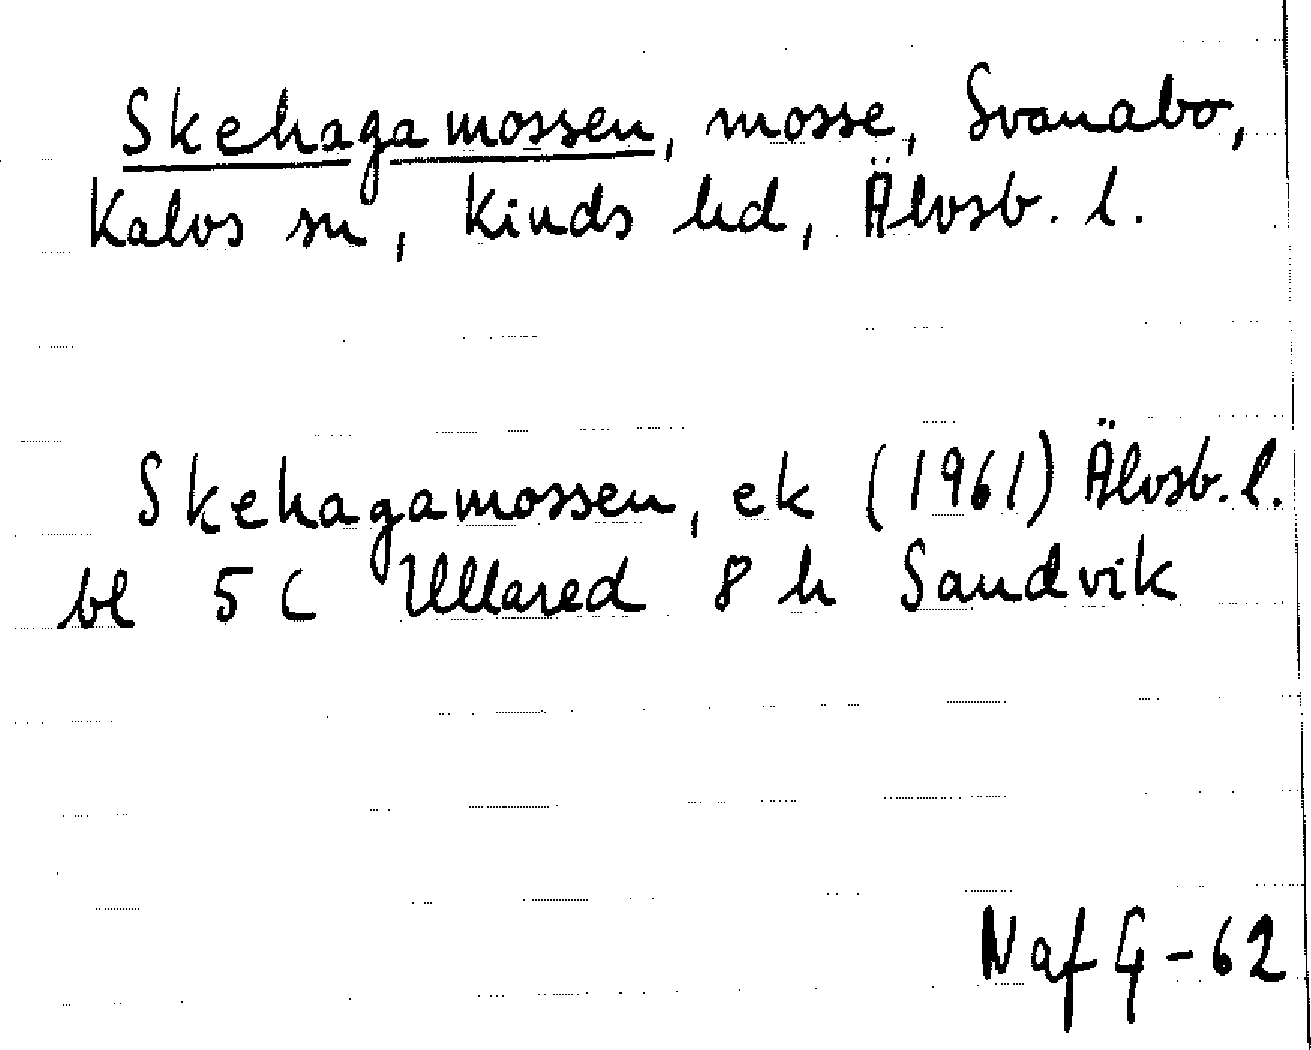 Skehagamossen, mosse, Svanabo,
Kalvs sn, Kinds hd, Älvsb. l.
Skehagamossen, ek (1961) Älvsb. l.
bl 5 C Ullared 8 h Sandvik
NafG-62